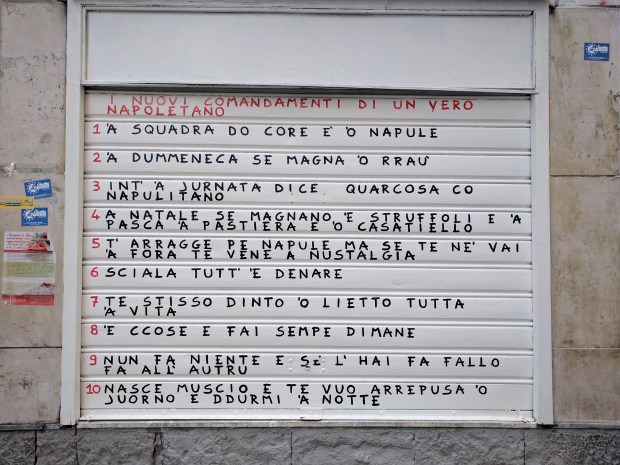 I NUOVI COMANDAMENTI DI UN VERO
NAPOLETANO
1 'A SQUADRA DO CORE E' 'O NAPULE
2 'A DUMMENECA SE MAGNA 'O RRAU'
3 INT' 'A JURNATA DICE QUARCOSA CO
NAPULITANO
4 A NATALE SE MAGNANO 'E STRUFFOLI E 'A
PASCA 'A PASTIERA E 'O CASATIELLO
5 T' ARRAGGE PE NAPULE MA SE TE NE' VAI
'A FORA TE VENE A NUSTALGIA
6 SCIALA TUTT' 'E DENARE
7 TE STISSO DINTO 'O LIETTO TUTTA
'A VITA
8 'E CCOSE E FAI SEMPE DIMANE
9 NUN FA NIENTE E SE' L' HAI FA FALLO
FA ALL' AUTRU
10 NASCE MUSCIO E TE VUO ARREPUSA 'O
JUORNO E DDURMI 'A NOTTE